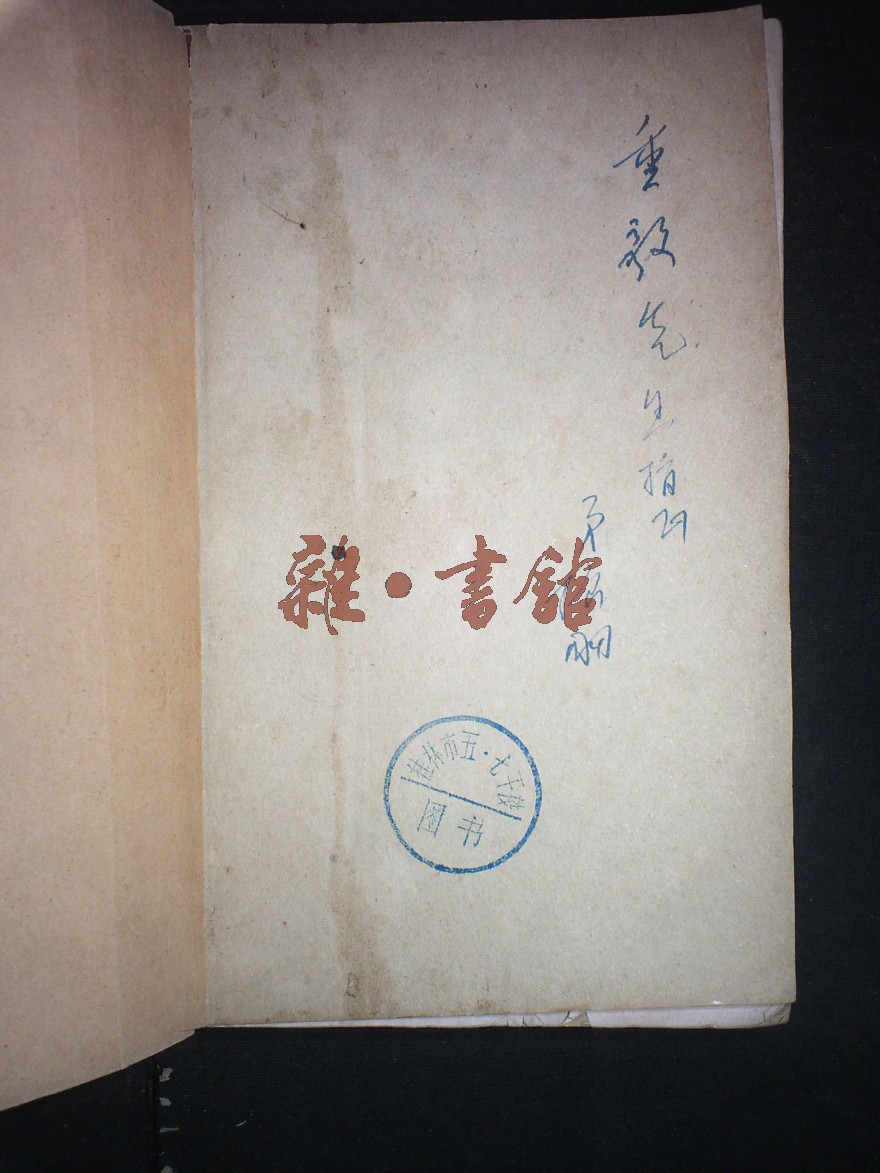 重毅先生指正
弟
雜·書館
桂林市五·七干校
图书